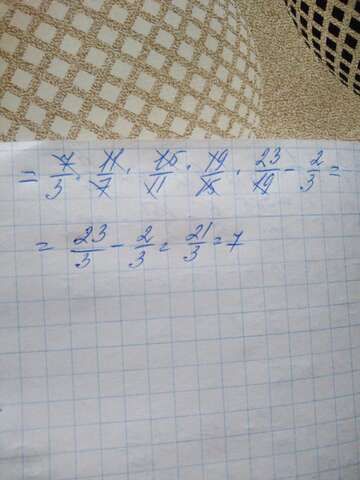 = 7/3 · 11/7 · 15/11 · 19/15 · 23/19 - 2/3 =
= 23/3 - 2/3 = 21/3 = 7